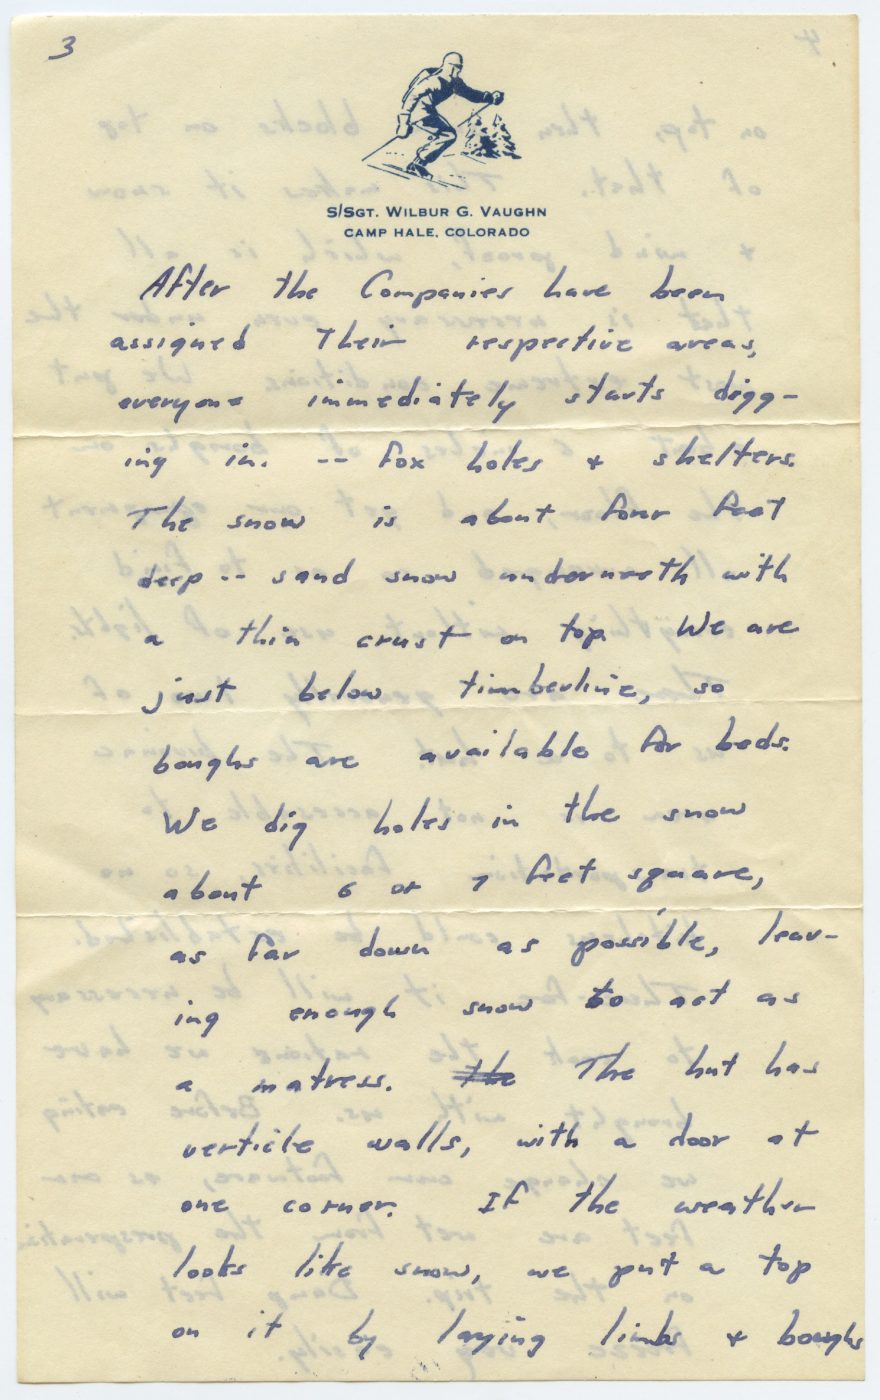 3
S/SGT. WILBUR G. VAUGHN
CAMP HALE, COLORADO
After the Companies have been
assigned their respective areas,
everyone immediately starts digg-
ing in. -- fox holes & shelters.
The snow is about four feet
deep -- sand snow underneath with
a thin crust on top. We are
just below timberline, so
boughs are available for beds.
We dig holes in the snow
about 6 or 7 feet square,
as far down as possible, leav-
ing enough snow to act as
a matress. the The hut has
verticle walls, with a door at
one corner. If the weather
looks like snow, we put a top
on it by laying limbs & boughs